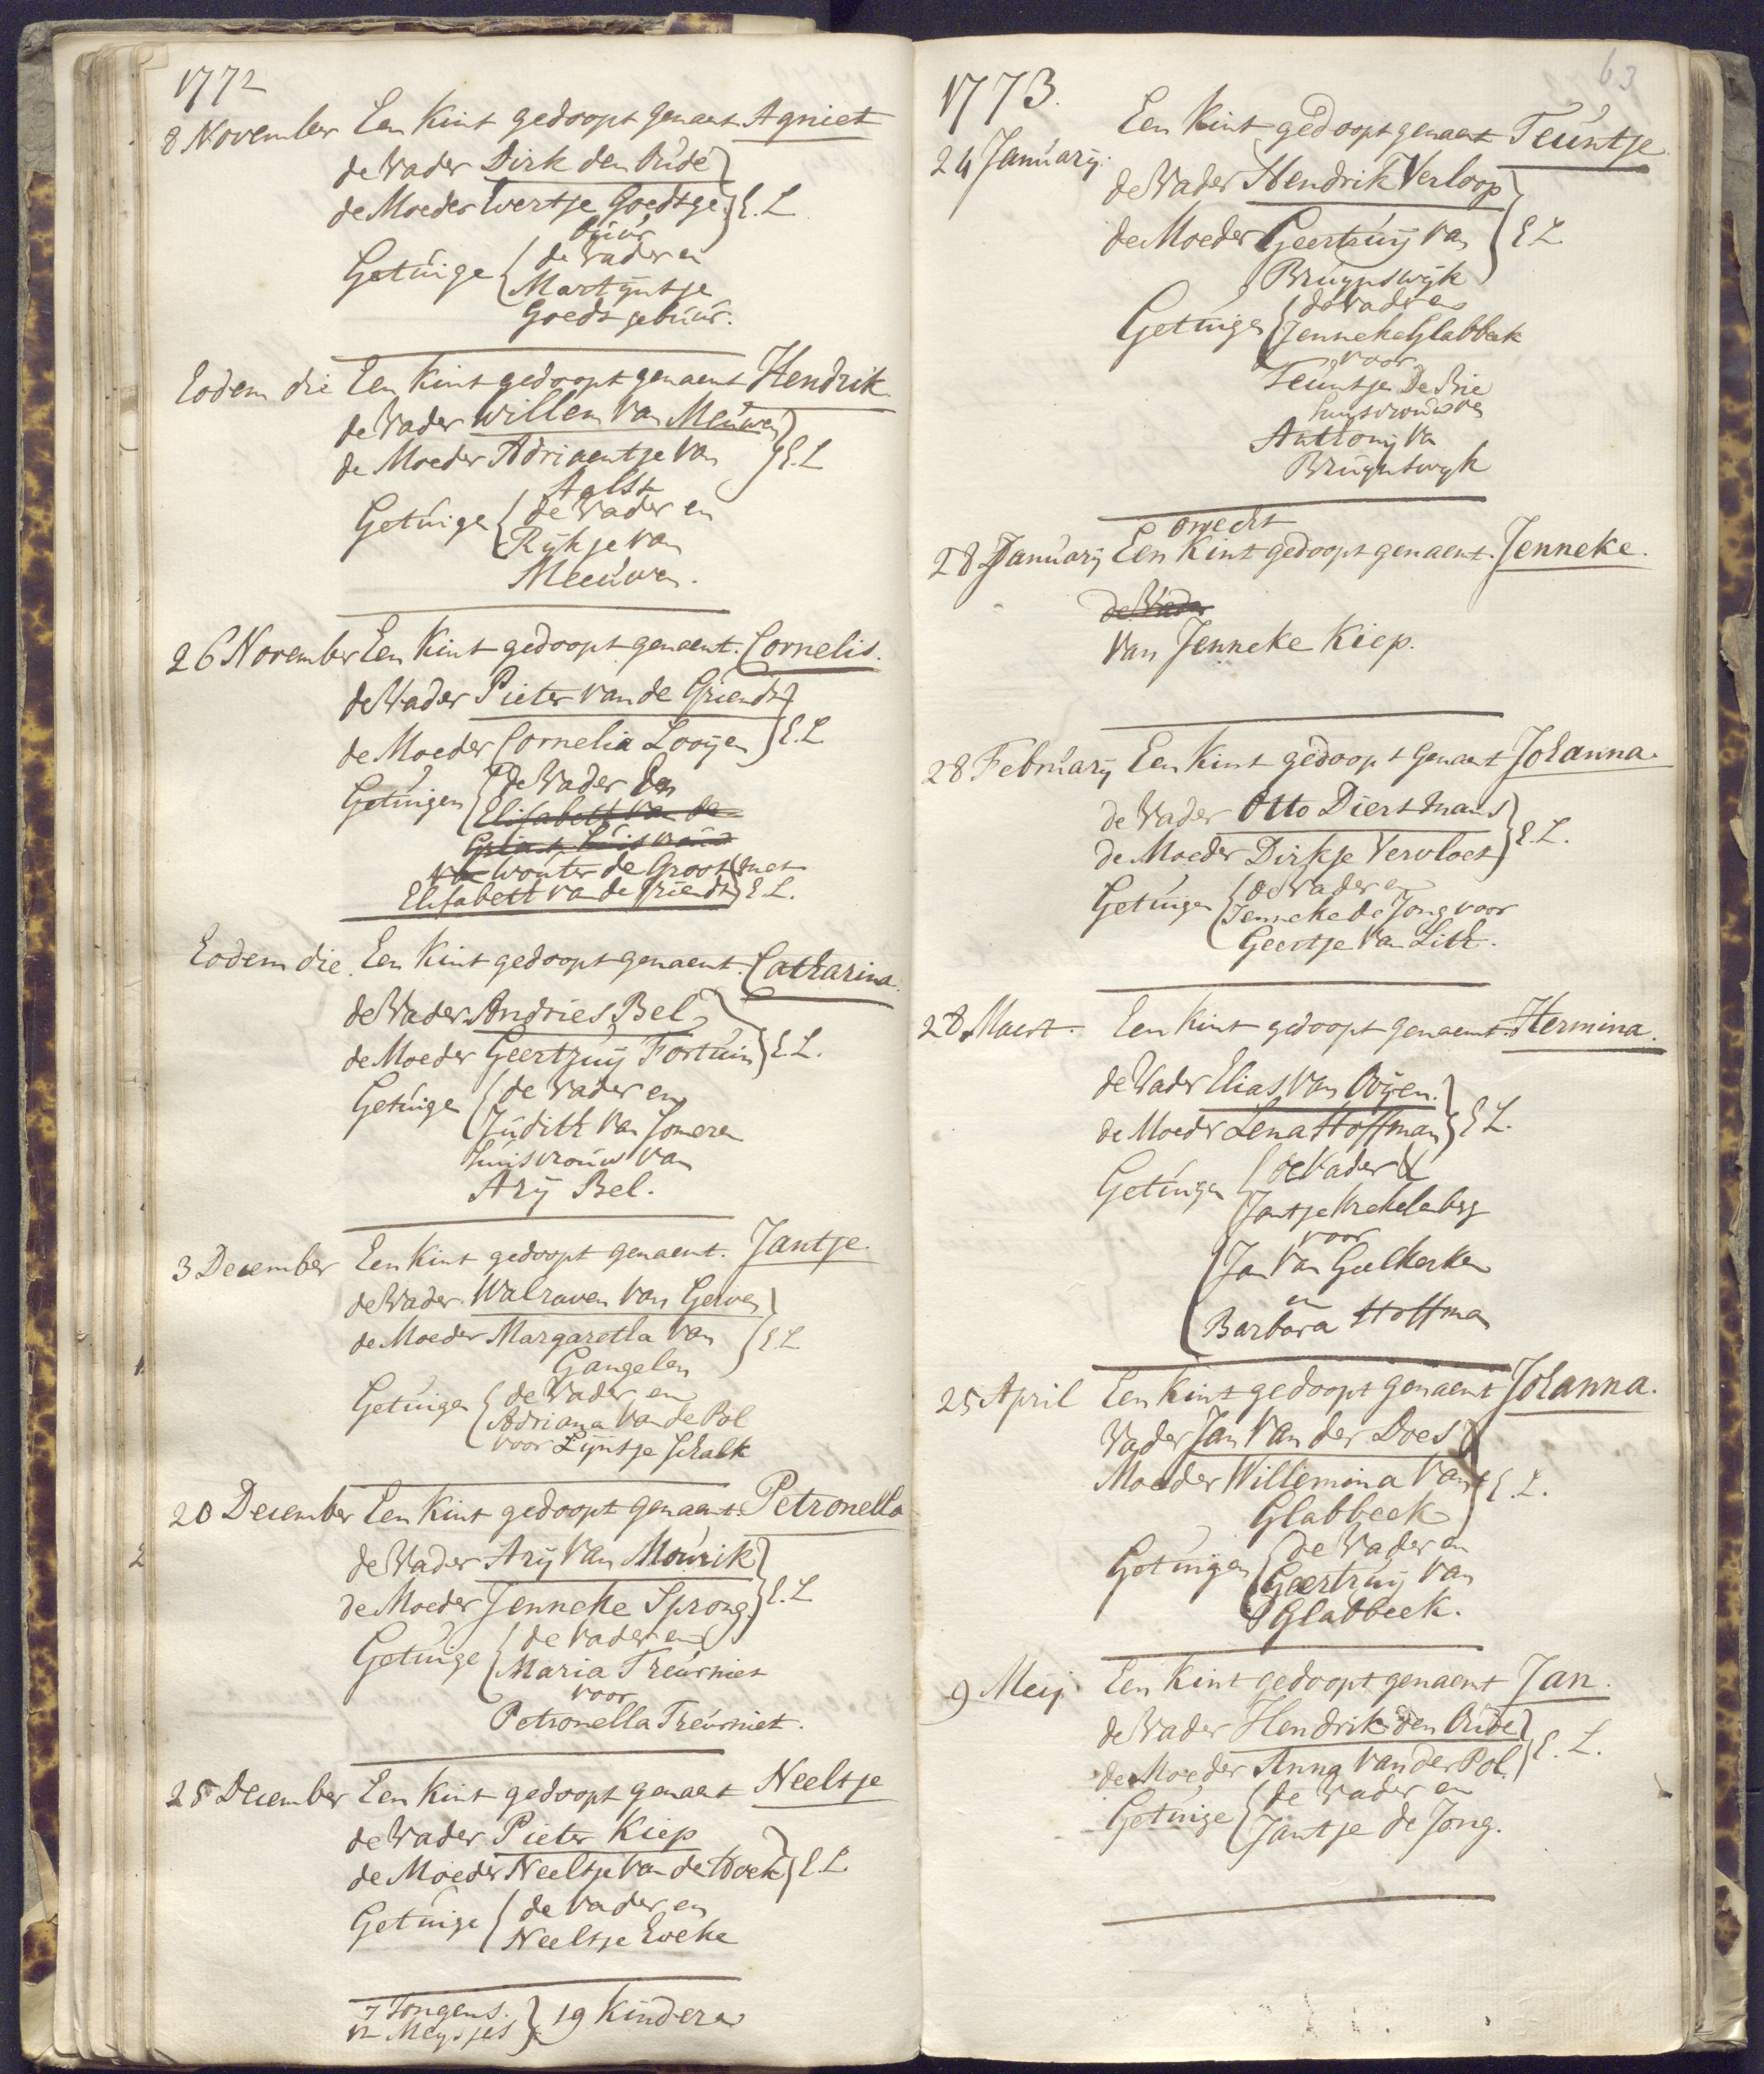 1772
8 November Een Kint gedoopt genaemt Agniet
de Vader Dirk den Oude
de Moeder Evertje Goedtge- } E. L
buur
Getuige { de Vader en
Martijntje
Goedt gebuur.
Eodem die Een Kint gedoopt genaemt Hendrik
de Vader Willem Van Meuwen
de Moeder Adriaentje Van } E. L
Aalst
Getuige { de Vader en
Rijkje van
Meeuwen.
26 November Een Kint gedoopt genaemt. Cornelis.
de Vader Pieter van de Griendt
de Moeder Cornelia Looijen } E. L.
Getuigen { de Vader En
Elisabeth Van de
Grient huisvrouw
Van Wouter de Groot met
Elisabett van de Griendt } E L.
Eodem die. Een Kint gedoopt genaemt. Catharina.
de Vader Andries Bel
de Moeder Geertruij Fortuin } E. L.
Getuige { de Vader en
Judith Van Someren
huisvrouw van
Arij Bel.
3 December Een Kint gedoopt genaemt. Jantje.
de Vader Walraven Van Gerven
de Moeder Margaretha Van } E. L
Gangelen
Getuigen { de Vader en
Adriana Van de Pol
voor Lijntje Schalk
20 December Een Kint gedoopt genaemt. Petronella
de Vader Arij Van Mourik
de Moeder Jenneke Sprong. } E. L
Getuige { de Vader en
Maria Treurniet
voor
Petronella Treurniet.
25 December Een Kint gedoopt genaemt Neeltje
de Vader Pieter Kiep
de Moeder Neeltje Van de Hoek } E. L.
Getuige { de Vader en
Neeltje
7 Jongens.
12 Meysjes } 19 Kinderen
63
1773.
24 January. Een Kint gedoopt genaemt Teuntje
de Vader Hendrik Verloop
de Moeder Geertruij Van } E L
Bruynswijk
Getuigen { de Vader en
Jenneke Glabbeek
voor
Teuntje De Brie
huysvrouw van
Anthonij Van
Bruynswyk
onecht
28 January Een Kint gedoopt genaemt. Jenneke.
de Vader
Van Jenneke Kiep.
28 February Een Kint gedoopt genaemt Johanna.
de Vader Otto Diersmans
de Moeder Dirkje Vervloet } E. L.
Getuigen { de Vader en
Jenneke de Jong voor
Geertje Van Lith.
28 Maert. Een Kint gedoopt genaemt Hermina.
de Vader Elias Van Oijen.
de Moeder Lena Hoffman } E L.
Getuigen { de Vader &
Jantje Krekelberg
voor
Jan Van Geelkerken
en
Barbara Hoffman
25 April Een Kint gedoopt genaemt Johanna.
Vader Jan Van der Does
Moeder Willemina Van } E. L.
Glabbeek
Getuigen { de Vader en
Geertruij Van
Glabbeek.
9 Meij Een Kint gedoopt genaemt Jan.
de Vader Hendrik den Oude
de Moeder Anna Van der Pol. } E. L.
Getuige { de Vader en
Jantje de Jong.